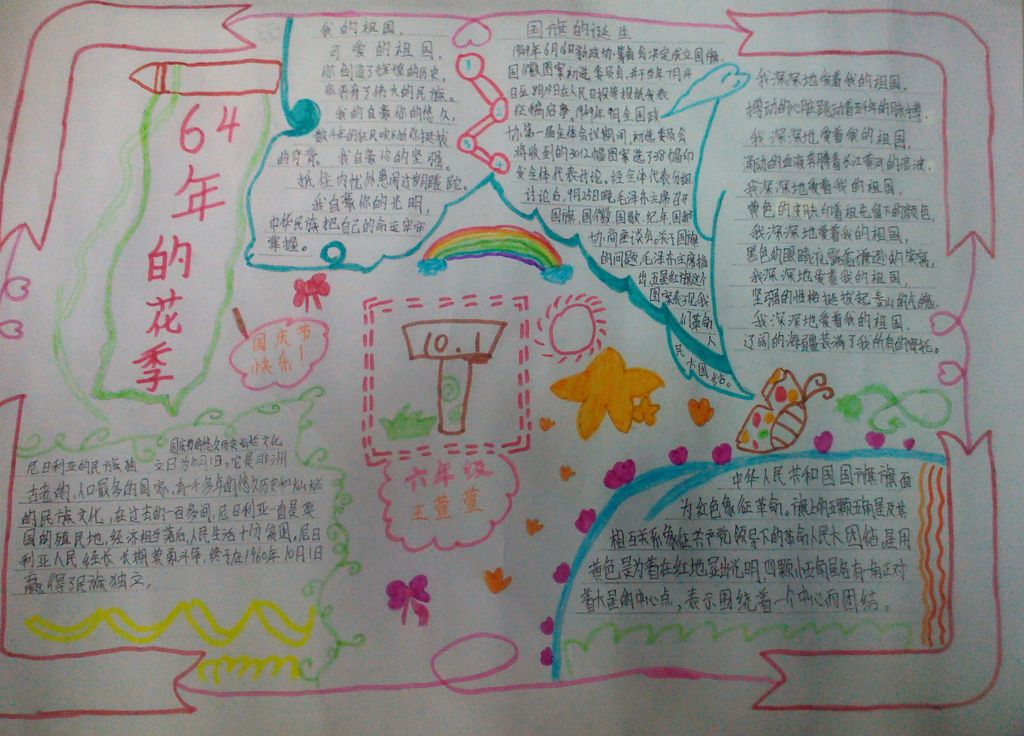 64年的花季
我的祖国,
可爱的祖国,
你创造了辉煌的历史,
我的自豪你的悠久,
我自豪你的坚强。
我自豪你的光明,
中华民族把自己的命运牢牢
掌握。
国旗的诞生
1949年6月16日新政协筹备会决定成立国旗、
国徽图案初选委员会,并于当年7月14
日至8月15日在人民日报等报纸发表
征稿启事,1949年9月全国政
协第一届全体会议期间,初选委员会
将收到的3012幅图案选了38幅印
发全体代表讨论。经全体代表分组
讨论后,9月25日晚,毛泽东主席召开
国旗、国徽、国歌、纪年、国都
协商座谈会。关于国旗
的问题,毛泽东主席指
出:五星红旗这个
图案表现我
们革命
人
民大团结。
我深深地爱着我的祖国,
搏动的心脏跳动着五千年的脉搏,
我深深地爱着我的祖国,
涌动的血液奔腾着长江黄河的浪波,
我深深地爱着我的祖国,
黄色的皮肤印着祖先留下的颜色,
我深深地爱着我的祖国,
我深深地爱着我的祖国,
坚强的性格挺拔起泰山的气魄,
我深深地爱着我的祖国,
辽阔的海疆装满了我所有的寄托。
国庆节
快乐!
10.1
六年级
王萱萱
尼日利亚的民族独
立日为10月1日。它是非洲
古老的、人口最多的国家,有一千多年的悠久历史和灿烂
的民族文化,在过去的一百多间,尼日利亚一直是英
国的殖民地,经济相当落后,人民生活十分贫困,尼日
利亚人民经长长期英勇斗争,终于在1960年10月1日
赢得了民族独立。
中华人民共和国国旗旗面
为红色象征革命。旗上的五颗五角星及其
相互关系象征共产党领导下的革命人民大团结。星用
黄色是为着在红地显出光明,四颗小五角星各有一角正对
着大星的中心点,表示围绕着一个中心而团结。